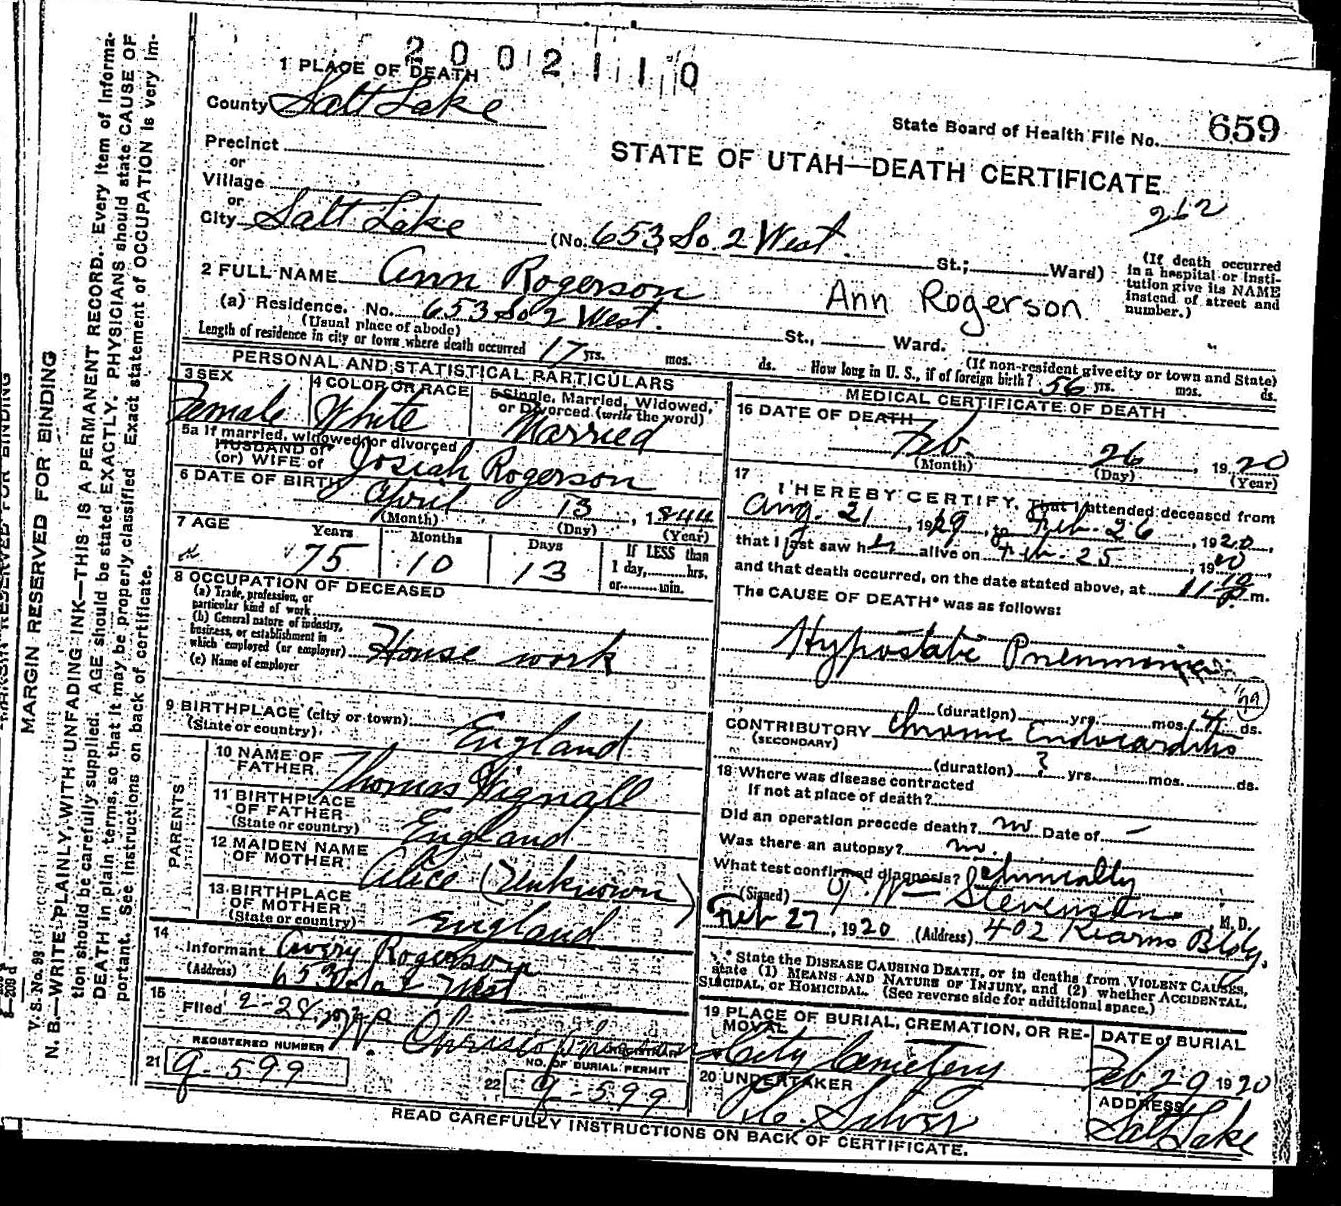 2002110
1 PLACE OF DEATH
County Salt Lake
State Board of Health File No. 659
Precinct
or
STATE OF UTAH—DEATH CERTIFICATE
Village
or
262
City Salt Lake (No. 653 So 2 West. St.; Ward)
(If death occurred
in a hospital or insti-
tution give its NAME
instead of street and
number.)
2 FULL NAME Ann Rogerson
Ann Rogerson
(a) Residence. No. 653 So 2 West. St., Ward.
(Usual place of abode)
(If non-resident give city or town and State)
Length of residence in city or town where death occurred 17 yrs. mos. ds. How long in U. S., if of foreign birth? 56 yrs. mos. ds.
PERSONAL AND STATISTICAL PARTICULARS
3 SEX
Female
4 COLOR OR RACE
White
5 Single, Married, Widowed,
or Divorced (write the word)
Married
5a If married, widowed, or divorced
HUSBAND of
(or) WIFE of Josiah Rogerson
6 DATE OF BIRTH April 13, 1844
(Month) (Day) (Year)
7 AGE Years Months Days
75 10 13
If LESS than
1 day, hrs.
or min.
8 OCCUPATION OF DECEASED
(a) Trade, profession, or
particular kind of work
(b) General nature of industry,
business, or establishment in
which employed (or employer) House work
(c) Name of employer
9 BIRTHPLACE (city or town)
(State or country) England
PARENTS
10 NAME OF
FATHER Thomas Wignall
11 BIRTHPLACE
OF FATHER
(State or country) England
12 MAIDEN NAME
OF MOTHER Alice (Unknown)
13 BIRTHPLACE
OF MOTHER
(State or country) England
14
Informant Avery Rogerson
(Address) 653 So 2 West
15
Filed 2-28, W. Christopherson
REGISTRAR
REGISTERED NUMBER
21 g-599
NO. OF BURIAL PERMIT
22 g-599
MEDICAL CERTIFICATE OF DEATH
16 DATE OF DEATH
Feb. 26, 1920
(Month) (Day) (Year)
17
I HEREBY CERTIFY, That I attended deceased from
Aug. 21, 1919, to Feb. 26, 1920,
that I last saw her alive on Feb. 25, 1920
and that death occurred, on the date stated above, at 11-10 P. m.
The CAUSE OF DEATH* was as follows:
Hypostatic Pneumonia
(duration) yrs. mos. 14 ds.
CONTRIBUTORY Chronic Endocarditis
(SECONDARY)
(duration) ? yrs. mos. ds.
18 Where was disease contracted
If not at place of death?
Did an operation precede death? no Date of —
Was there an autopsy? no.
What test confirmed diagnosis? Clinically
(Signed) Wm Stevenson, M. D.
Feb 27, 1920 (Address) 402 Kearns Bldg.
* State the DISEASE CAUSING DEATH, or in deaths from VIOLENT CAUSES,
state (1) MEANS AND NATURE OF INJURY, and (2) whether ACCIDENTAL,
SUICIDAL, or HOMICIDAL. (See reverse side for additional space.)
19 PLACE OF BURIAL, CREMATION, OR RE-
MOVAL
City Cemetery
DATE of BURIAL
Feb 29 1920
20 UNDERTAKER
Silver
ADDRESS
Salt Lake
READ CAREFULLY INSTRUCTIONS ON BACK OF CERTIFICATE.
MARGIN RESERVED FOR BINDING
V. S. No. 98
N. B.—WRITE PLAINLY, WITH UNFADING INK—THIS IS A PERMANENT RECORD. Every item of informa-
tion should be carefully supplied. AGE should be stated EXACTLY. PHYSICIANS should state CAUSE OF
DEATH in plain terms, so that it may be properly classified. Exact statement of OCCUPATION is very im-
portant. See instructions on back of certificate.